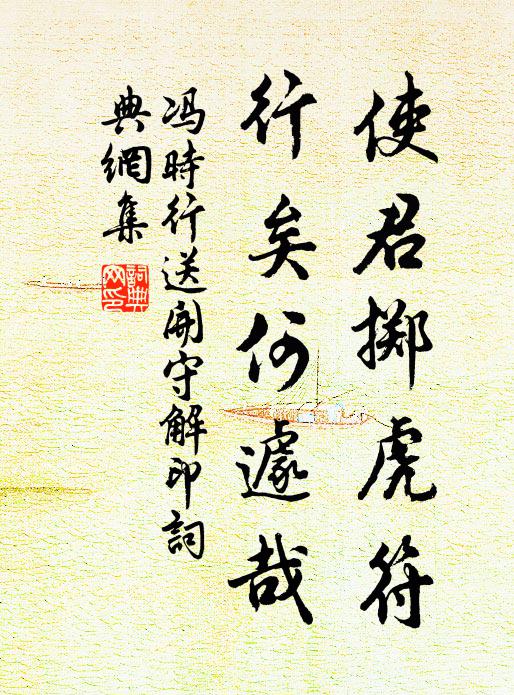 使君掷虎符
行矣何遽哉
冯時行送開守解印詞
典網集
詞典
网印